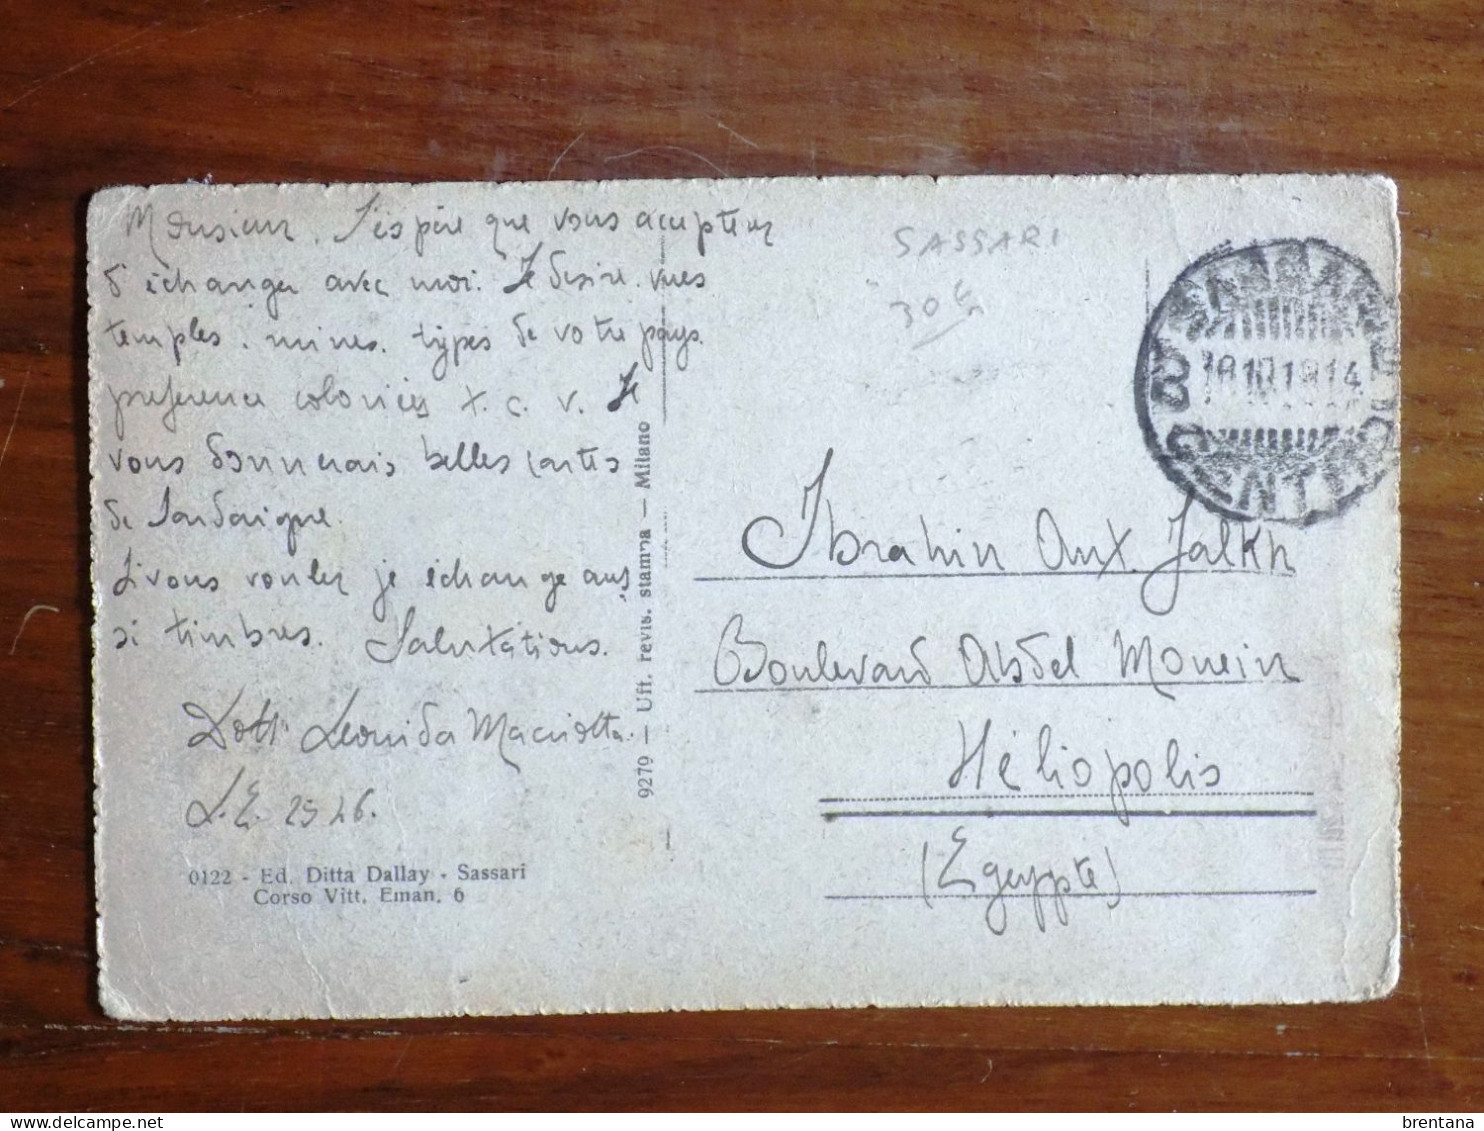 Monsieur. J'espère que vous accepterez
d'échanger avec moi. Je desire. vues
temples. mines. types de votre pays.
preference coloriées x. c. v. Je
vous donnerais belles cartes
de Sardaigne.
Si vous voulez je échange aus
si timbres. Salutations.
Dott Leonida Macciotta.
L.E. 2526.
0122 - Ed. Ditta Dallay - Sassari
Corso Vitt. Eman. 6
9279 - Uff. revis. stampa - Milano
SASSARI
30 €
SASSARI
18 14
CENTRO
Ibrahim Jalkh
Boulevard Abdel Moneim
Héliopolis
(Egypte)
brentana